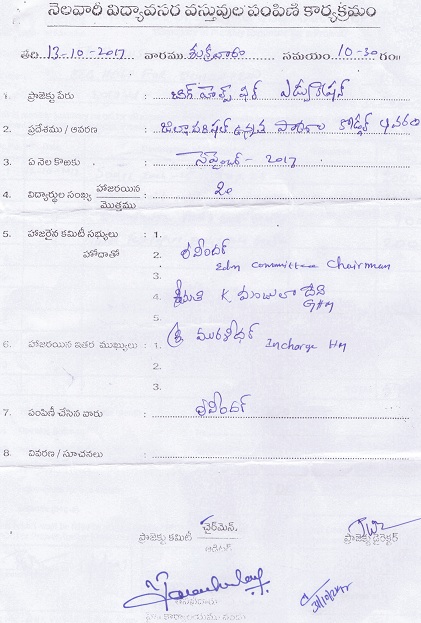 నెలవారి విద్యావసర వస్తువుల పంపిణి కార్యక్రమం
తేది 13-10-2017 వారము శుక్రవారం సమయం 10-30 గం॥
1. ప్రాజెక్టు పేరు : బిగ్ హెల్ప్ ఫర్ ఎడ్యుకేషన్
2. ప్రదేశము / ఆవరణ : జిల్లాపరిషత్ ఉన్నత పాఠశాల
3. ఏ నెల కొఱకు : సెప్టెంబర్ - 2017
4. విద్యార్థుల సంఖ్య హాజరయిన : 20
మొత్తము
5. హాజరైన కమిటీ సభ్యులు : 1.
హోదాతో 2. రవీందర్
Edn Committee Chairman
3.
4. శ్రీమతి K మంజులా దేవి
GHM
5.
6. హాజరయిన ఇతర ముఖ్యులు : 1. శ్రీ మురళీధర్ Incharge HM
2.
3.
7. పంపిణీ చేసిన వారు : రవీందర్
8. వివరణ / సూచనలు :
ప్రాజెక్టు కమిటీ చైర్‌మెన్. ప్రాజెక్టు డైరెక్టర్
ఆడిటర్